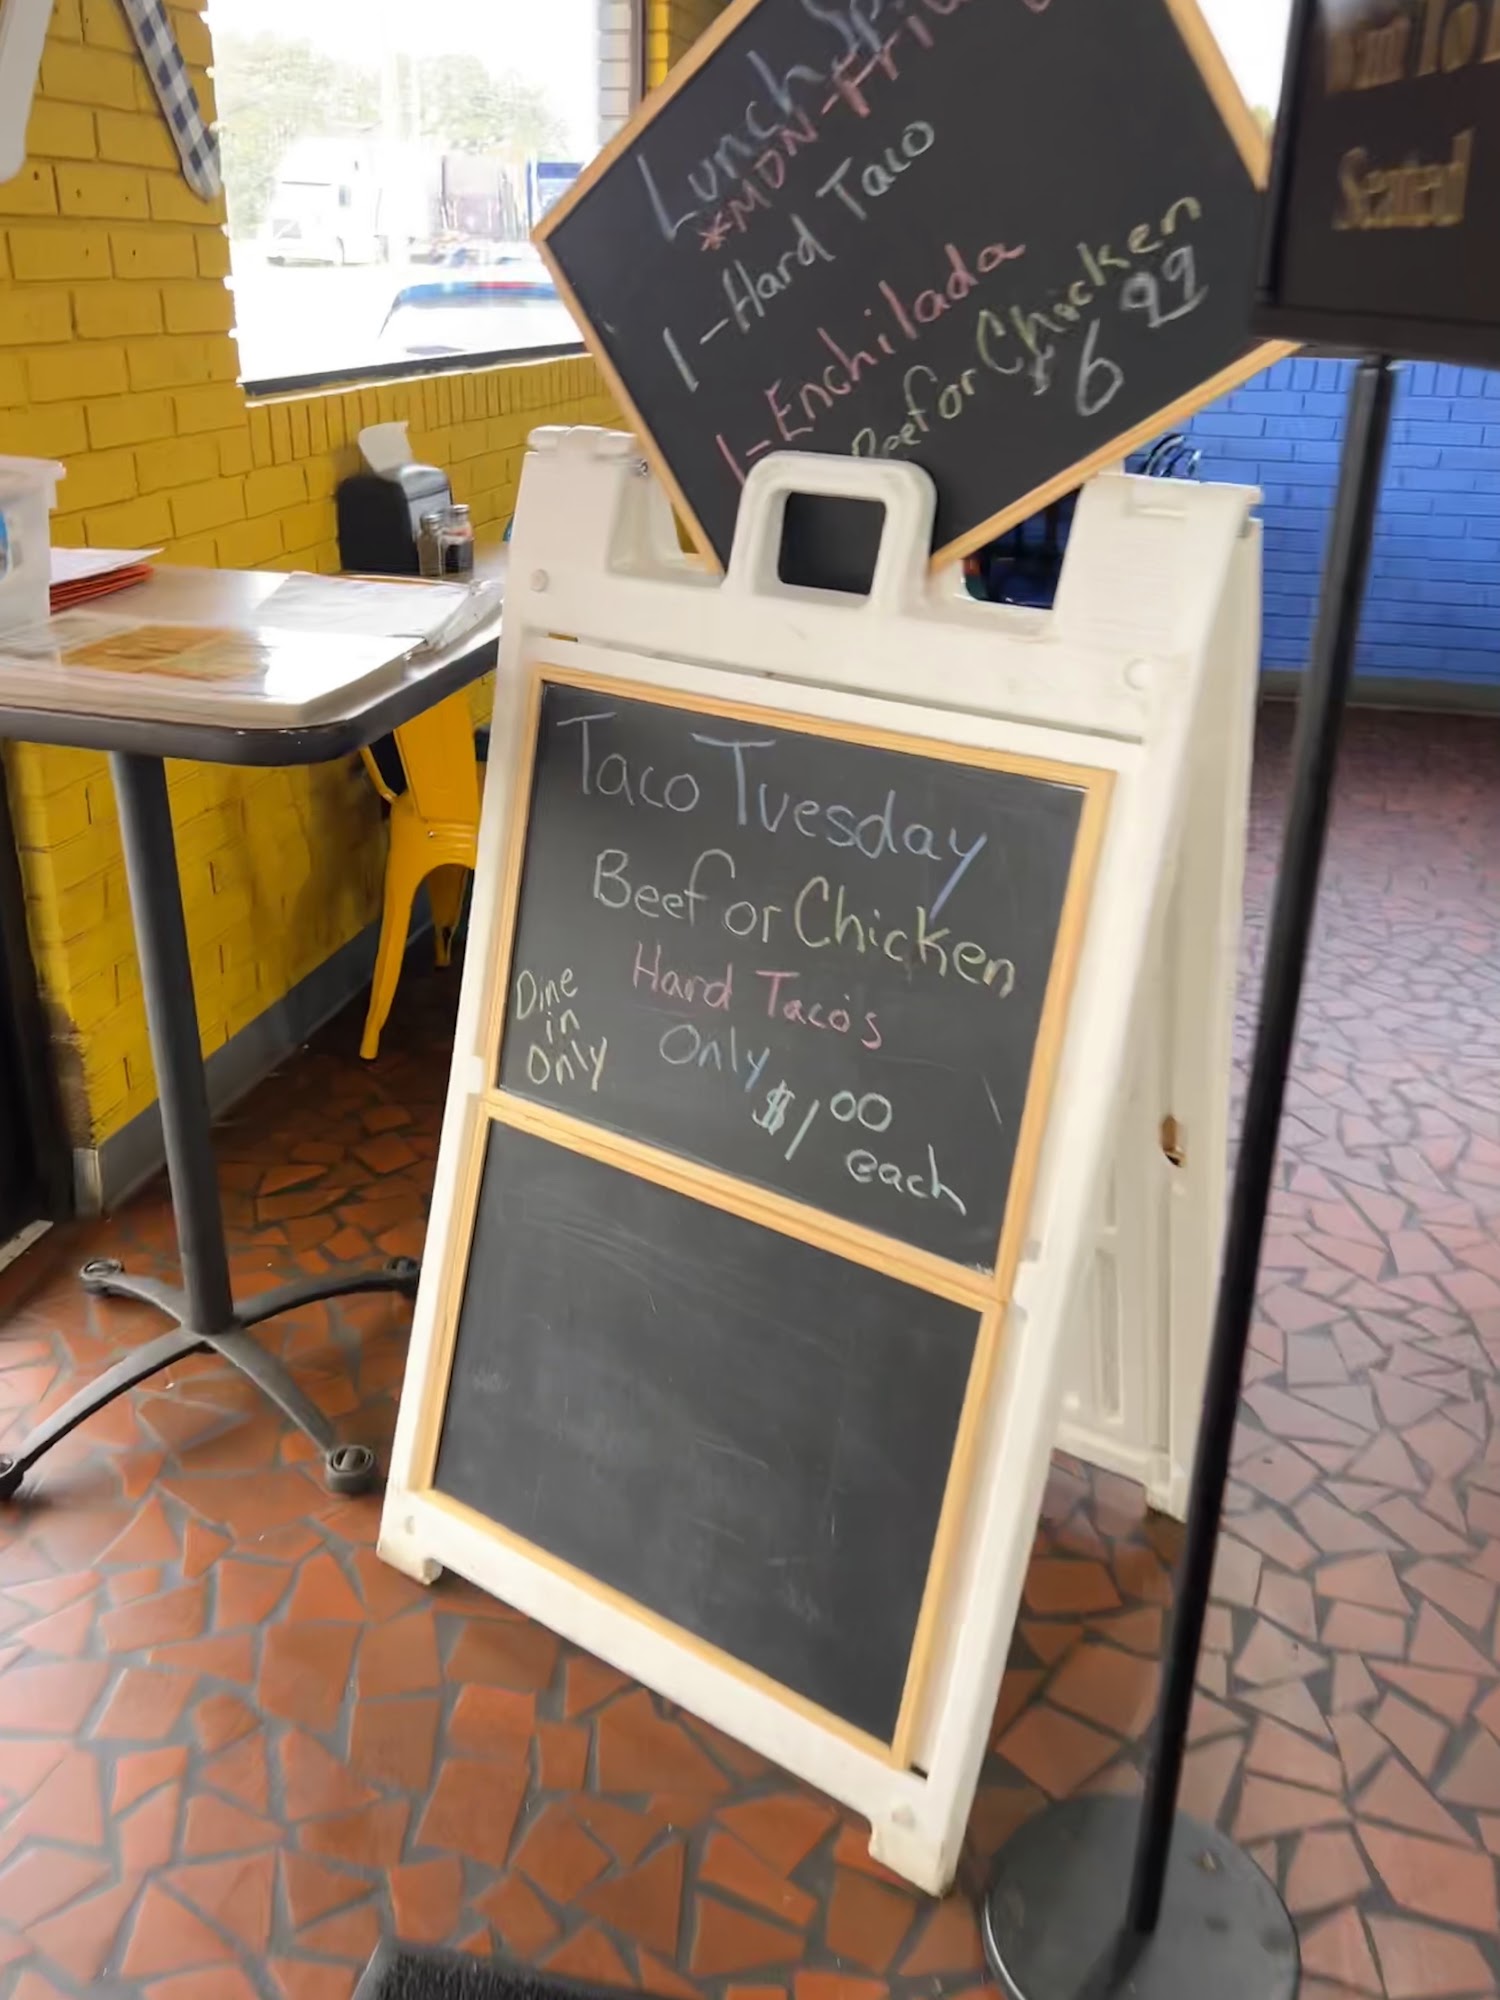 Lunch
*MON-Friday
1-Hard Taco
1-Enchilada
Beef or Chicken
$6 99
Seated
Taco Tuesday
Beef or Chicken
Hard Taco's
Dine
in
Only
Only
$1 00
each